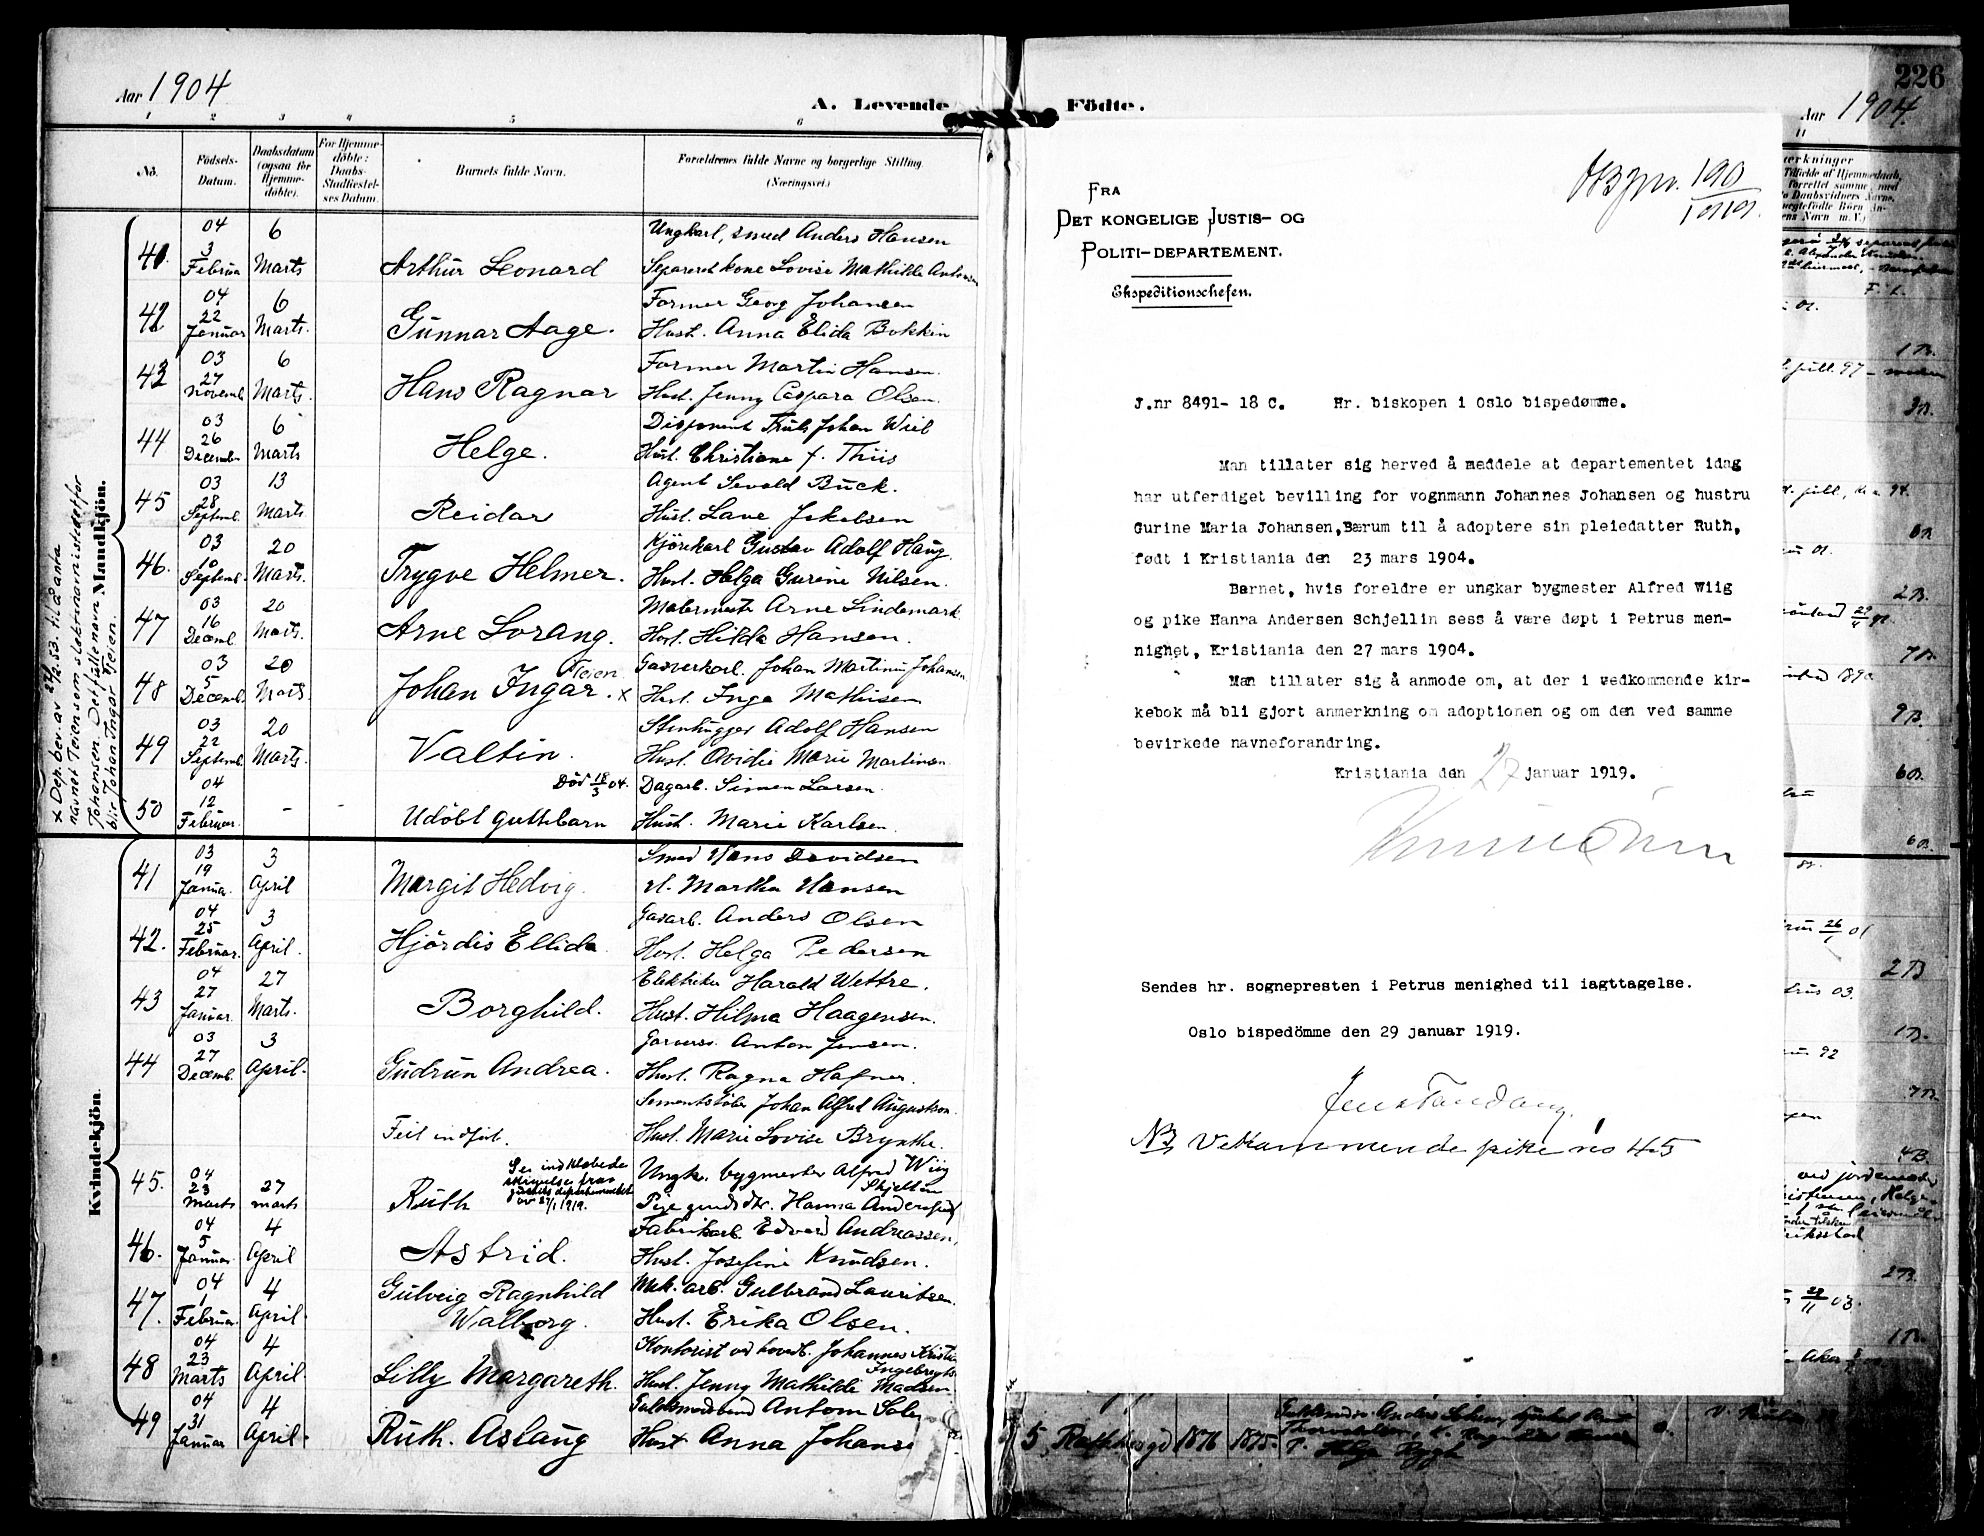 Aar 1904
A. Levende
1 2 3 4 5 6
No.
Födsels-
Datum.
Daabsdatum
(ogsaa for
Hjemme-
döbte).
For Hjemme-
döbte:
Daabs-
Stadfæstel-
ses Datum.
Barnets fulde Navn.
Forældrenes fulde Navne og borgerlige Stilling
(Næringsvei.)
Mandkjön.
x Dep. bev. av 12.53. til å anta
navnet Teien som slektsnavn istedetfor
Johansen. Det fulle navn
blir Johan Ingar Teien.
04 6 Ungkarl, smed Anders Hansen
41. 3 Februa Marts Arthur Leonard Separeret kone Lovise Mathilde Antonsen
04 6 Former Georg Johansen
42 22 Januar Marts. Gunnar Aage. Hust. Anna Elida Bokkin
03 6 Former Martin Hansen.
43 27 Novemb. Marts. Hans Ragnar Hust. Jenny Caspara Olsen.
03 6 Disponent Truls Johan Wiel
44 26 December Marts Helge. Hust. Christiane f. Thiis
03 13 Agent Sevald Buck.
45 28 Septemb. Marts Reidar Hust. Lave Jakobsen
03 20 Kjörekarl Gustav Adolf Haug.
46. 10 Septemb. Marts. Trygve Helmer. Hust. Helga Gurine Nilsen.
03 20 Malermester Arne Lindemark
47 16 Decemb. Marts. Arne Lorang. Hust. Hilda Hansen.
03 20 Teien Gasverkarb. Johan Martinus Johansen
48 5 Decemb. Marts Johan Ingar. x Hust. Inga Mathisen
03 20 Stenhugger Adolf Hansen
49 22 Septemb. Marts. Valtin. Hust. Ovidie Marie Martinsen
04 Död 18/3 04. Dagarb. Simen Larsen.
50 12 Februar. - Udöbt guttebarn Hust. Marie Karlsen.
Kvindekjön.
03 3 Smed Hans Davidsen
41 19 Januar. April Margit Hedvig. H. Martha Hansen
04 3 Gasarb. Anders Olsen
42. 25 Februar. April. Hjördis Ellida Hust. Helga Pedersen
04 27 Elektriker Harald Wettre.
43 27 Januar. Marts. Borghild. Hust. Hilma Haagensen.
03 3 Garversv. Anton Jensen.
44 27 Decemb. April. Gudrun Andrea. Hust. Ragna Hafner.
Sementstøber Johan Alfred Augustson.
Feil indført. Hust. Marie Lovise Brynthe.
45. 04 23 Marts 27 marts Ruth Se indklæbede
skrivelse fra
justitsdepartementet
av 27/1 1919.
Ungk. bygmester Alfred Wiig
Skjellin
Pige Hanna Andersen
04 4 Fabrikarb. Edvard Andreassen,
46. 5 Januar. April Astrid. Hust. Josefine Knudsen.
04 4 Gulveig Ragnhild Mek. arb. Gulbrand Lauritsen.
47. 1 Februar. April Walborg. Hust. Erika Olsen.
04 4 Kontorist ved hovedb. Johannes Kristian
Ingebrigts
48 23 Marts April. Lilly Margareth. Hust. Jenny Mathilde Madsen
04 4 Anton
49 31 Januar April. Ruth. Aslaug Hust Anna Johanse
Födte.
226
Aar 1904.
11
FRA
DET KONGELIGE JUSTIS- OG
POLITI-DEPARTEMENT.
Ekspeditionschefen.
OBjnr. 190/1919.
J.nr 8491- 18 C. Hr. biskopen i Oslo bispedømme.
Man tillater sig herved å meddele at departementet idag
har utferdiget bevilling for vognmann Johannes Johansen og hustru
Gurine Maria Johansen, Bærum til å adoptere sin pleiedatter Ruth,
født i Kristiania den 23 mars 1904.
Barnet, hvis foreldre er ungkar bygmester Alfred Wiig
og pike Hanna Andersen Schjellin sess å være døpt i Petrus men-
nighet, Kristiania den 27 mars 1904.
Man tillater sig å anmode om, at der i vedkommende kir-
kebok må bli gjort anmerkning om adoptionen og om den ved samme
bevirkede navneforandring.
Kristiania den 27 januar 1919.
Sendes hr. sognepresten i Petrus menighed til iagttagelse.
Oslo bispedömme den 29 januar 1919.
Jens Tandberg.
NB Vedkommende pike no 45
ærkninger
Tilfælde af Hjemmedaab,
forrettet samme, med
Daabsvidners Navne.
ægtefödte Börn An-
ens Navn m. V.)
1B.
2B.
7B.
9B.
2B
1B.
4B.
2B.
5 1876 1875.